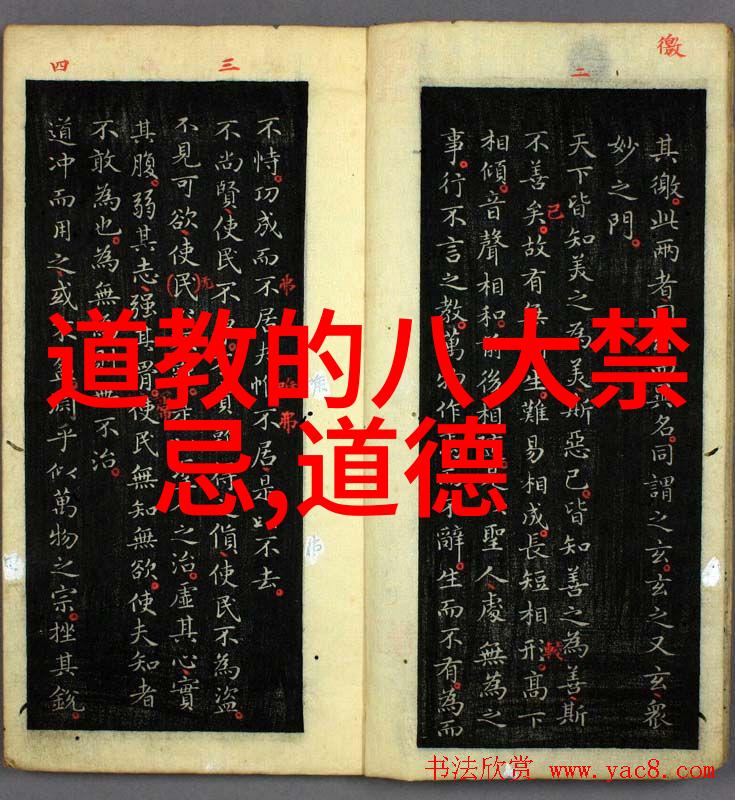 道教的八大禁
忌,道德
徼
二
其徼此两者名同謂之玄玄之又玄衆
妙之門
天下皆知美之為美斯惡已皆知善之為善斯
不善矣故有生難易相成長短相形高下
相傾音聲相和前後相聖人處無為之
事行不言之教萬物作辭生而不有為而
三
不恃功成而不居夫惟不居是以不去
不尚賢使民不貴使民不為盜
不見可欲使民之治虛其心實
四
其腹弱其志强其骨使民無知無欲使夫知者
不敢為也為無不治
道冲而用之或乎似萬物之宗挫其銳
书法欣赏 www.yac8.com